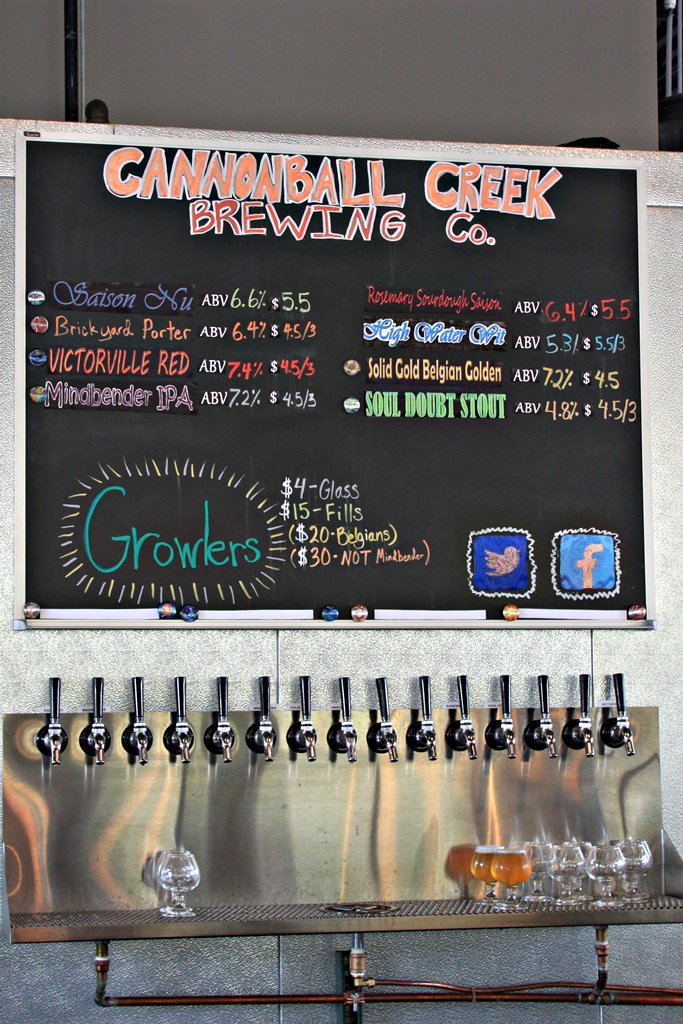 CANNONBALL CREEK
BREWING Co.
Saison Nu ABV 6.6% $5.5
Brickyard Porter ABV 6.4% $4.5/3
VICTORVILLE RED ABV 7.4% $4.5/3
Mindbender IPA ABV 7.2% $4.5/3
Rosemary Sourdough Saison ABV 6.4% $5.5
High Water Wit ABV 5.3% $5.5/3
Solid Gold Belgian Golden ABV 7.2% $4.5
SOUL DOUBT STOUT ABV 4.8% $4.5/3
Growlers
$4-Glass
$15-Fills
($20-Belgians)
($30-NOT Mindbender)
f